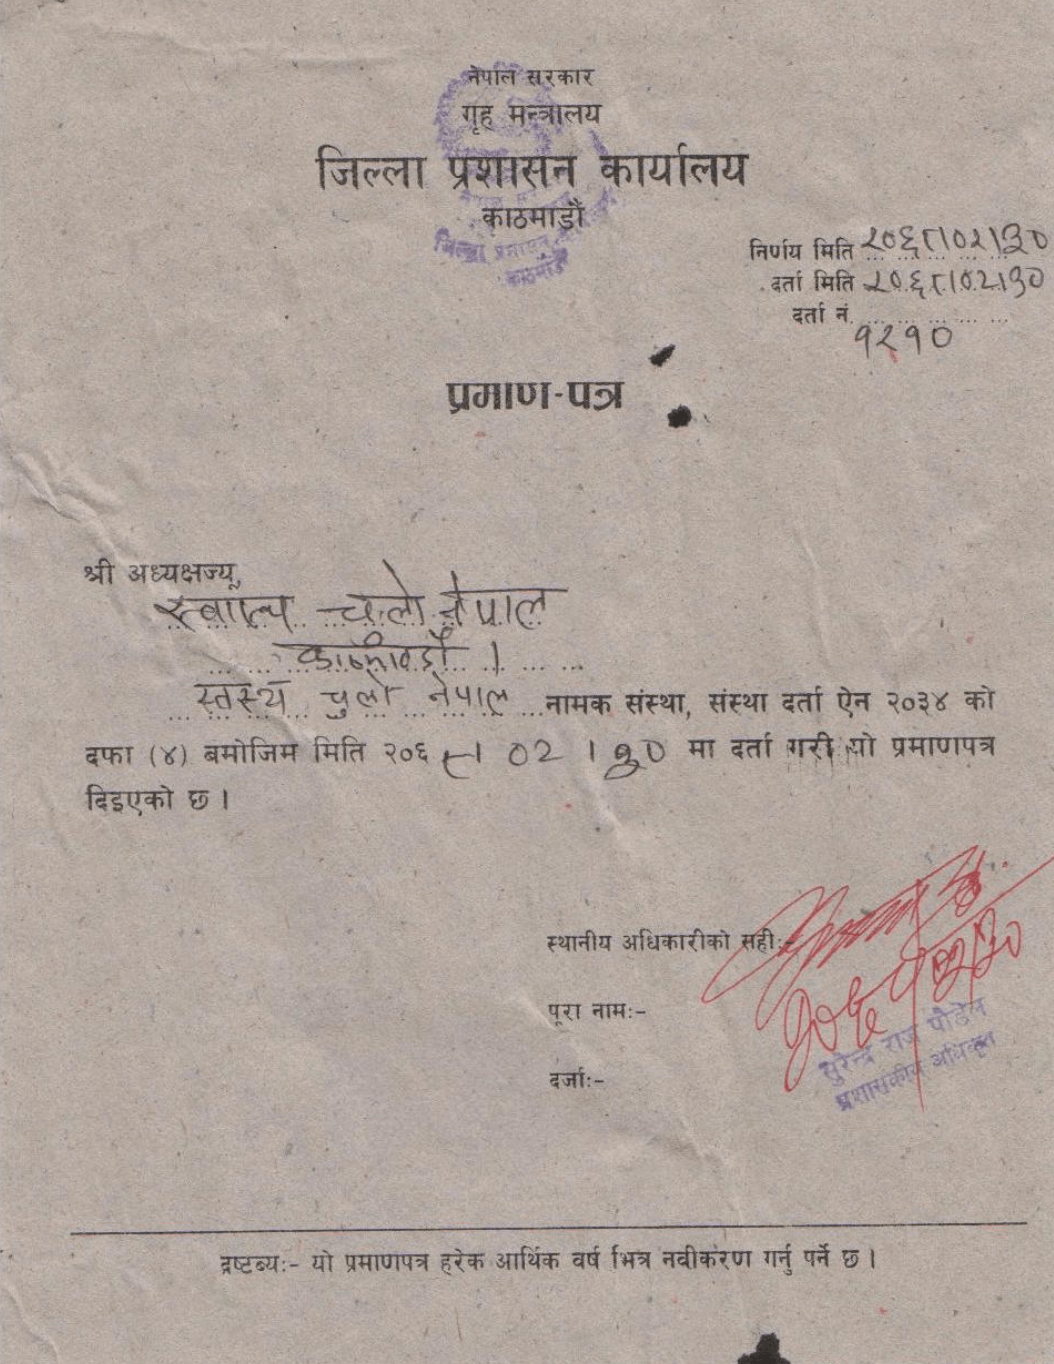 नेपाल सरकार
गृह मन्त्रालय
जिल्ला प्रशासन कार्यालय
काठमाडौं
जिल्ला प्रशासन
काठमाडौं
निर्णय मिति २०६८।०२।३०
दर्ता मिति २०६८।०२।३०
दर्ता नं
१२१०
प्रमाण-पत्र
श्री अध्यक्षज्यू,
चुलो नेपाल
काठमाडौं ।
स्वस्थ चुलो नेपाल नामक संस्था, संस्था दर्ता ऐन २०३४ को
दफा (४) बमोजिम मिति २०६८।०२।३० मा दर्ता गरी यो प्रमाणपत्र
दिइएको छ ।
स्थानीय अधिकारीको सही:-
पूरा नाम:-
सुरेन्द्र राज पौडेल
दर्जा:-
प्रशासकीय अधिकृत
द्रष्टब्य:- यो प्रमाणपत्र हरेक आर्थिक वर्ष भित्र नवीकरण गर्नु पर्ने छ ।